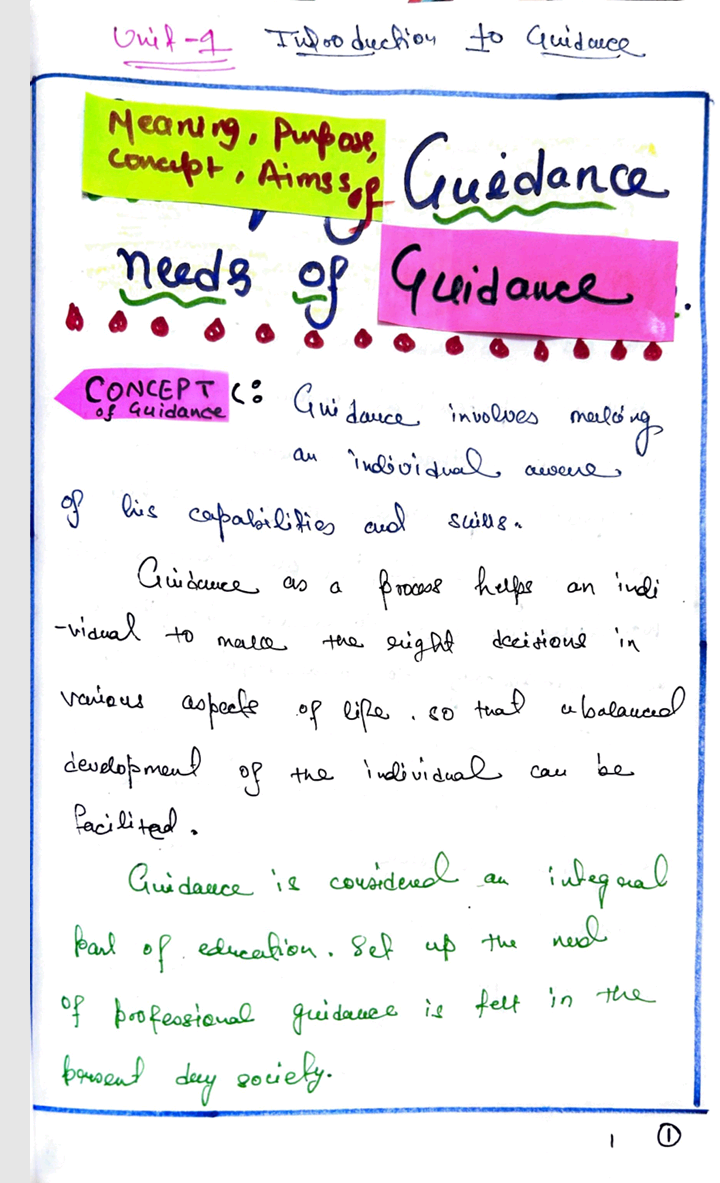 Unit-1 Introduction to Guidance
Meaning, Purpose,
Concept, Aims of
Guidance
needs of Guidance.
CONCEPT
of Guidance
Guidance involves making
an individual aware
of his capabilities and skills.
Guidance as a process helps an indi
-vidual to make the right decisions in
various aspects of life. so that a balanced
development of the individual can be
facilited.
Guidance is considered an integral
part of education. Set up the need
of professional guidance is felt in the
present day society.
1 1